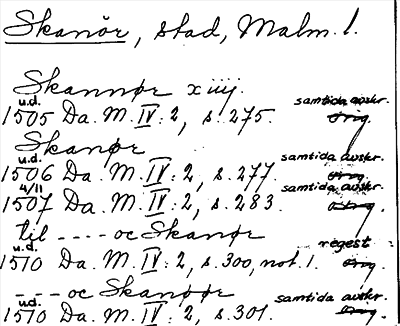 Skanör, stad, Malm. l.
Skannør xiiij.
u.d. samtida avskr.
1505 Da. M. IV: 2, s. 275. orig.
Skanør
u.d. samtida avskr.
1506 Da. M. IV: 2, s. 277. orig.
4/11 samtida avskr.
1507 Da. M. IV: 2, s. 283. orig.
til ---- oc Skanør
u.d. regest
1510 Da. M. IV: 2, s. 300, not. 1. orig.
---- oc Skanøør
u.d. samtida avskr.
1510 Da. M. IV: 2, s. 301. orig.